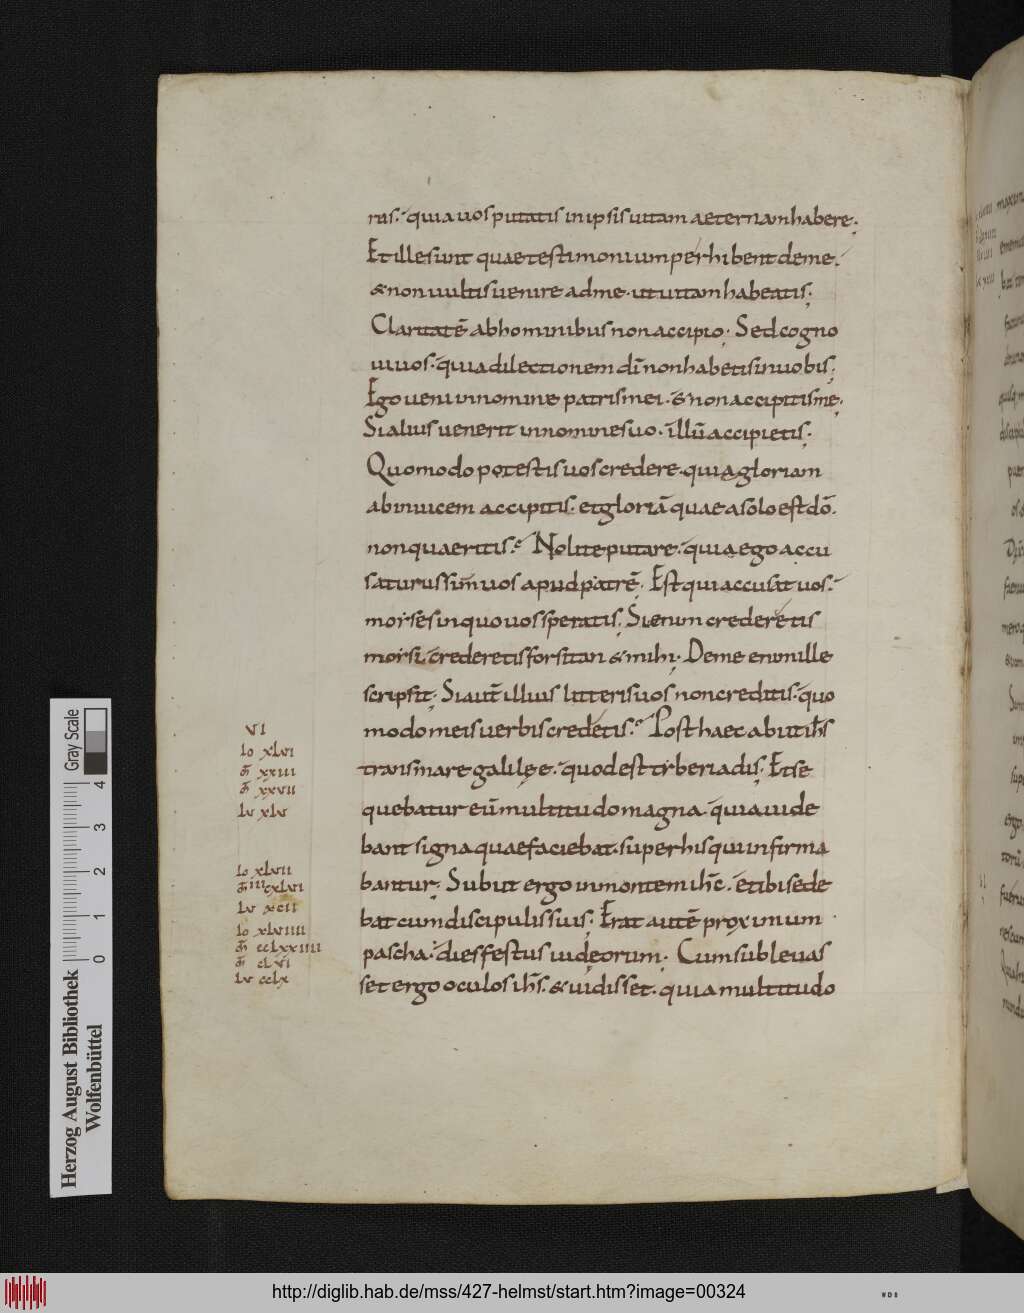 ras. quia uos putatis in ipsis uitam aeternam habere.
Et ille sunt quae testimonium perhibent de me.
& non uultis uenire ad me. ut uitam habeatis;
Claritatē ab hominibus non accipio. Sed cogno
ui uos. quia dilectionem dī non habetis in uobis;
Ego ueni in nomine patris mei. & non accipitis me;
Si alius uenerit in nomine suo. illū accipietis;
Quomodo potestis uos credere. quia gloriam
ab inuicem accipitis. et gloriā quae a solo est dō.
non quaeritis. Nolite putare. quia ego accu
saturus sim uos apud patrē. Est qui accusat uos.
moises in quo uos speratis; Si enim crederetis
moisi. crederetis forsitan & mihi; De me enim ille
scripsit; Si autē illius litteris uos non creditis. quo
modo meis uerbis credetis. Post haec abiit ihs
trans mare galilęe. quod est tyberiadis; Et se
quebatur eū multitudo magna. quia uide
bant signa quae faciebat. super his qui infirma
bantur; Subiit ergo in montem ihc. et ibi sede
bat cum discipulis suis; Erat autē proximum
pascha. dies festus iudeorum; Cum subleuas
set ergo oculos ihs. & uidisset. quia multitudo
VI
Io xlvi
m̄ xxiii
m̄ xxvii
Lv xlv
Io xlvii
m̄ cxlvi
Lv xcii
Io xlviiii
m̄ cclxxiiii
m̄ clvi
Lv cclx
Gray Scale
0 1 2 3 4
Herzog August Bibliothek
Wolfenbüttel
http://diglib.hab.de/mss/427-helmst/start.htm?image=00324